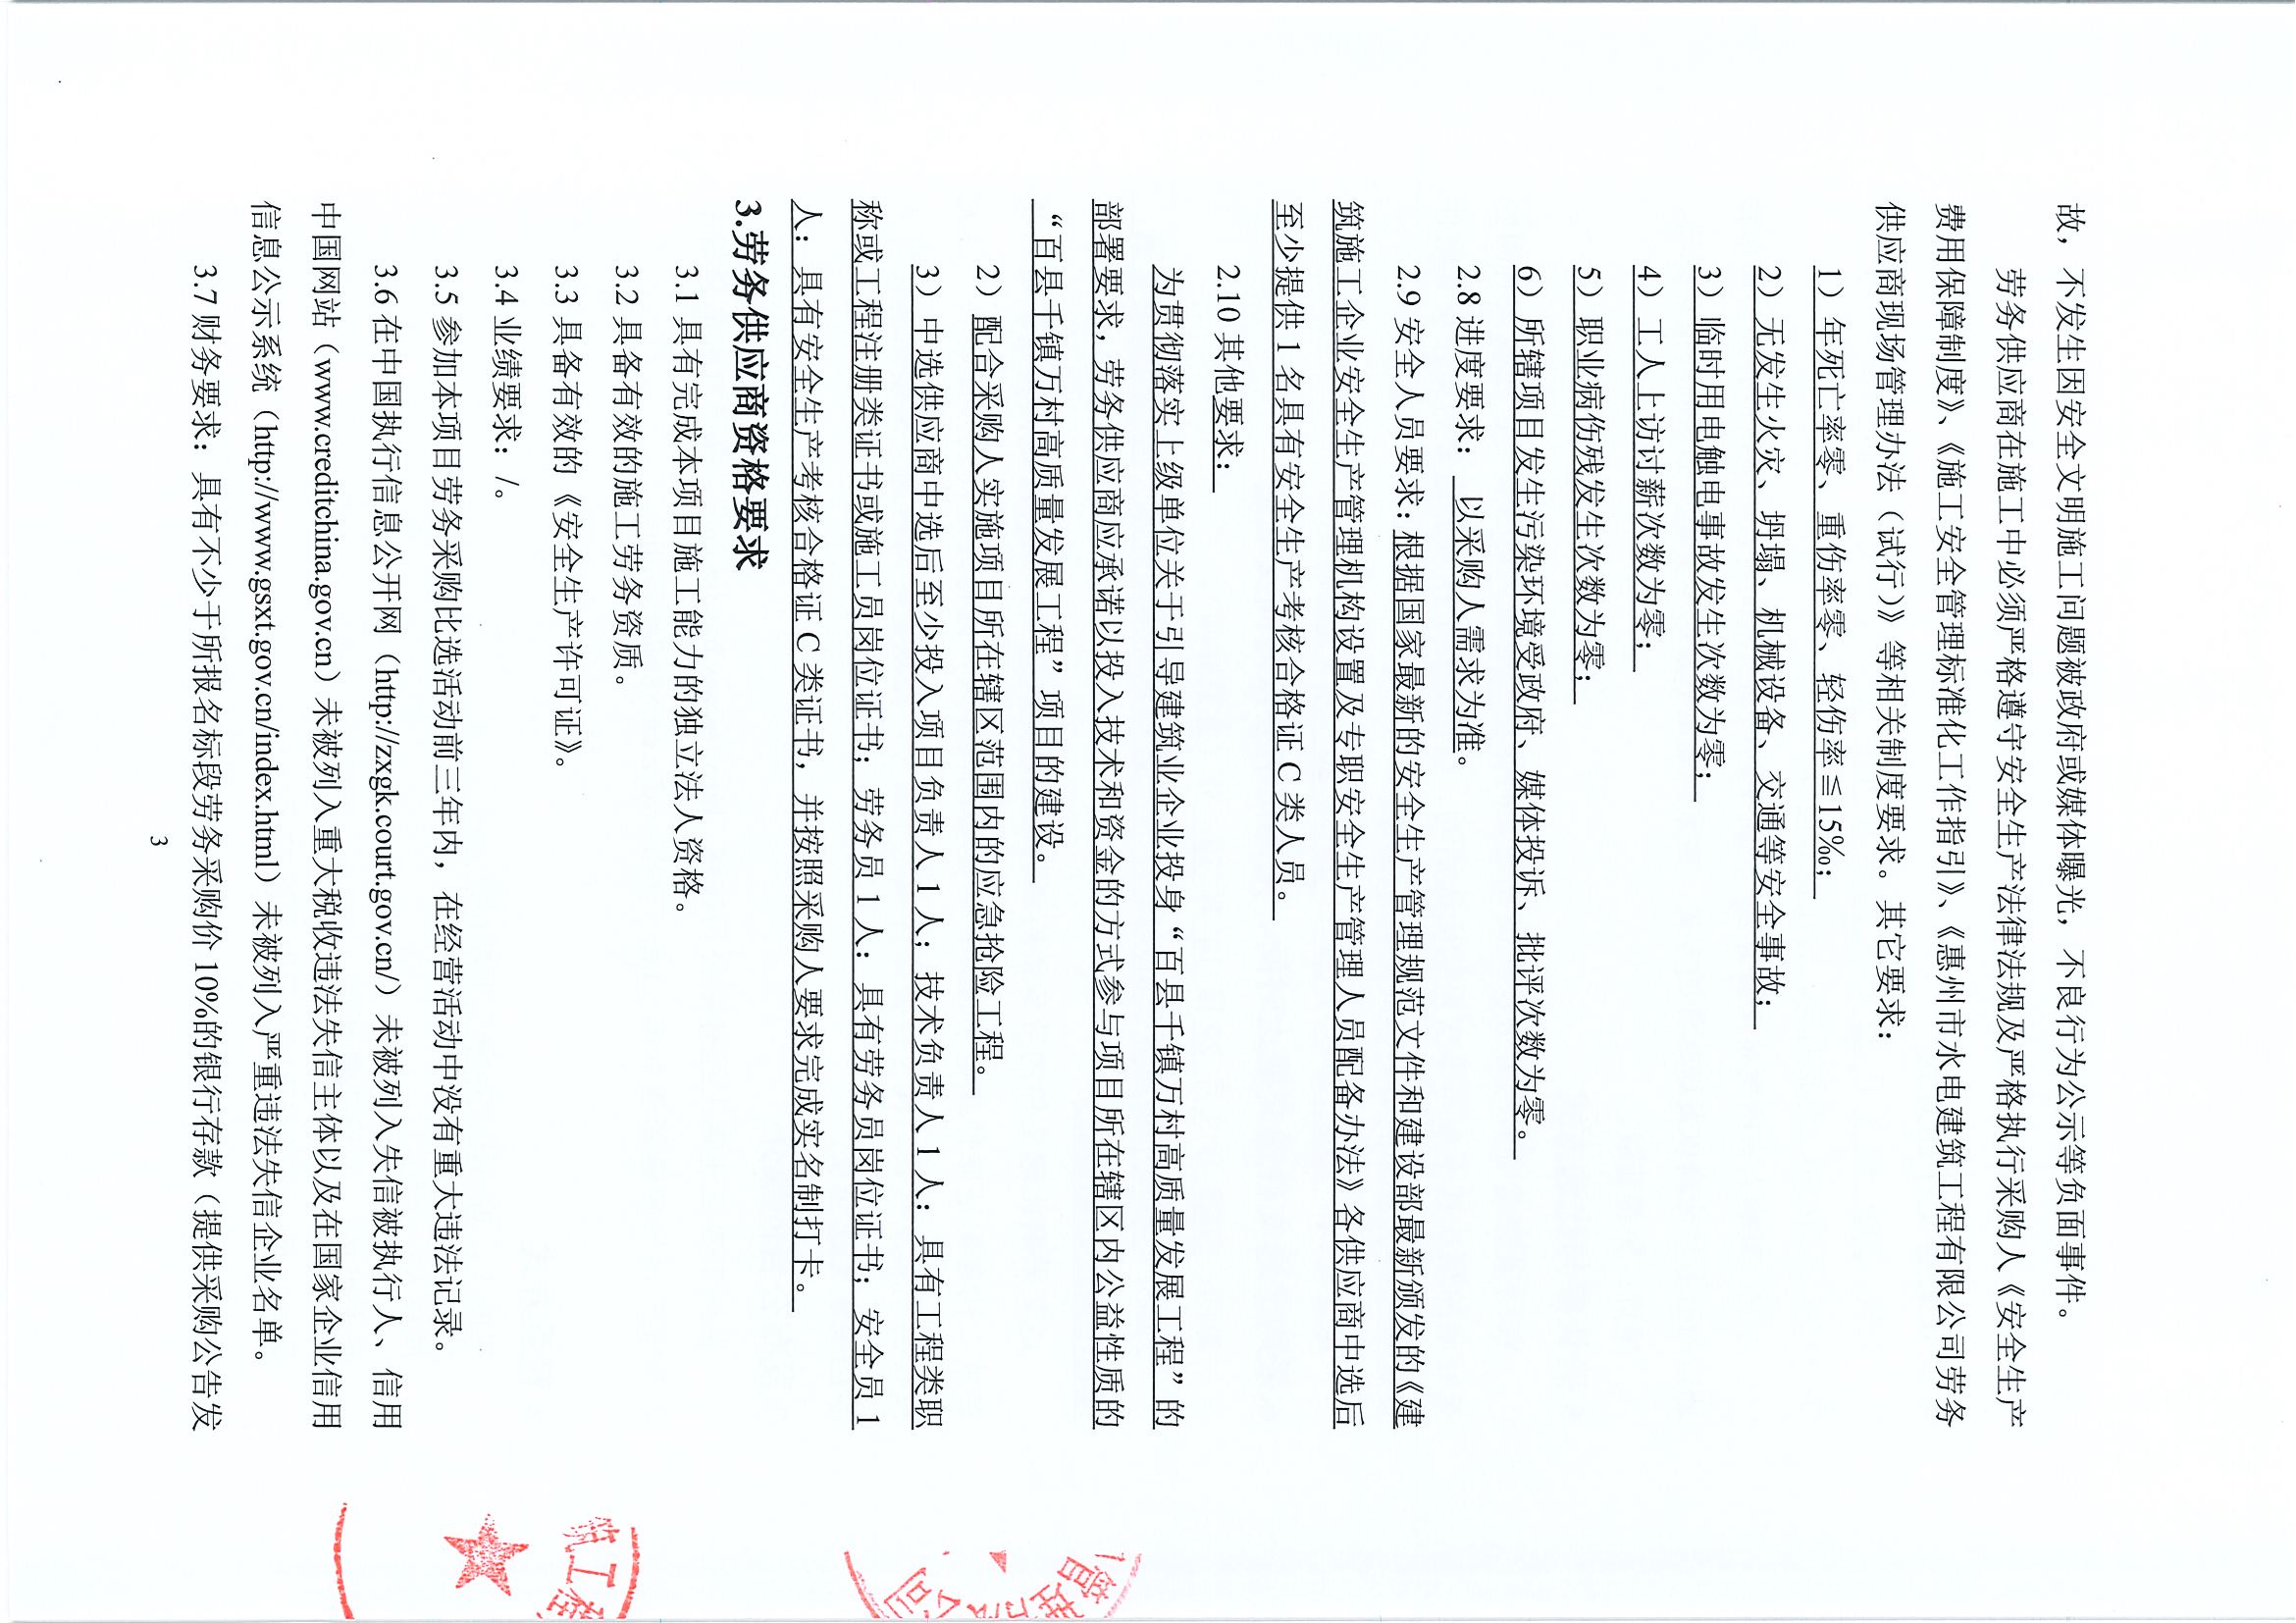 故，不发生因安全文明施工问题被政府或媒体曝光，不良行为公示等负面事件。
劳务供应商在施工中必须严格遵守安全生产法律法规及严格执行采购人《安全生产
费用保障制度》、《施工安全管理标准化工作指引》、《惠州市水电建筑工程有限公司劳务
供应商现场管理办法（试行）》等相关制度要求。其它要求：
1）年死亡率零、重伤率零、轻伤率≦15‰；
2）无发生火灾、坍塌、机械设备、交通等安全事故；
3）临时用电触电事故发生次数为零；
4）工人上访讨薪次数为零；
5）职业病伤残发生次数为零；
6）所辖项目发生污染环境受政府、媒体投诉、批评次数为零。
2.8 进度要求：以采购人需求为准。
2.9 安全人员要求：根据国家最新的安全生产管理规范文件和建设部最新颁发的《建
筑施工企业安全生产管理机构设置及专职安全生产管理人员配备办法》各供应商中选后
至少提供 1 名具有安全生产考核合格证 C 类人员。
2.10 其他要求：
为贯彻落实上级单位关于引导建筑业企业投身“百县千镇万村高质量发展工程”的
部署要求，劳务供应商应承诺以投入技术和资金的方式参与项目所在辖区内公益性质的
“百县千镇万村高质量发展工程”项目的建设。
2）配合采购人实施项目所在辖区范围内的应急抢险工程。
3）中选供应商中选后至少投入项目负责人 1 人；技术负责人 1 人：具有工程类职
称或工程注册类证书或施工员岗位证书；劳务员 1 人：具有劳务员岗位证书；安全员 1
人：具有安全生产考核合格证 C 类证书，并按照采购人要求完成实名制打卡。
3.劳务供应商资格要求
3.1 具有完成本项目施工能力的独立法人资格。
3.2 具备有效的施工劳务资质。
3.3 具备有效的《安全生产许可证》。
3.4 业绩要求：/。
3.5 参加本项目劳务采购比选活动前三年内，在经营活动中没有重大违法记录。
3.6 在中国执行信息公开网（http://zxgk.court.gov.cn/）未被列入失信被执行人、信用
中国网站（www.creditchina.gov.cn）未被列入重大税收违法失信主体以及在国家企业信用
信息公示系统（http://www.gsxt.gov.cn/index.html）未被列入严重违法失信企业名单。
3.7 财务要求：具有不少于所报名标段劳务采购价 10%的银行存款（提供采购公告发
3
管理
公司
筑工程